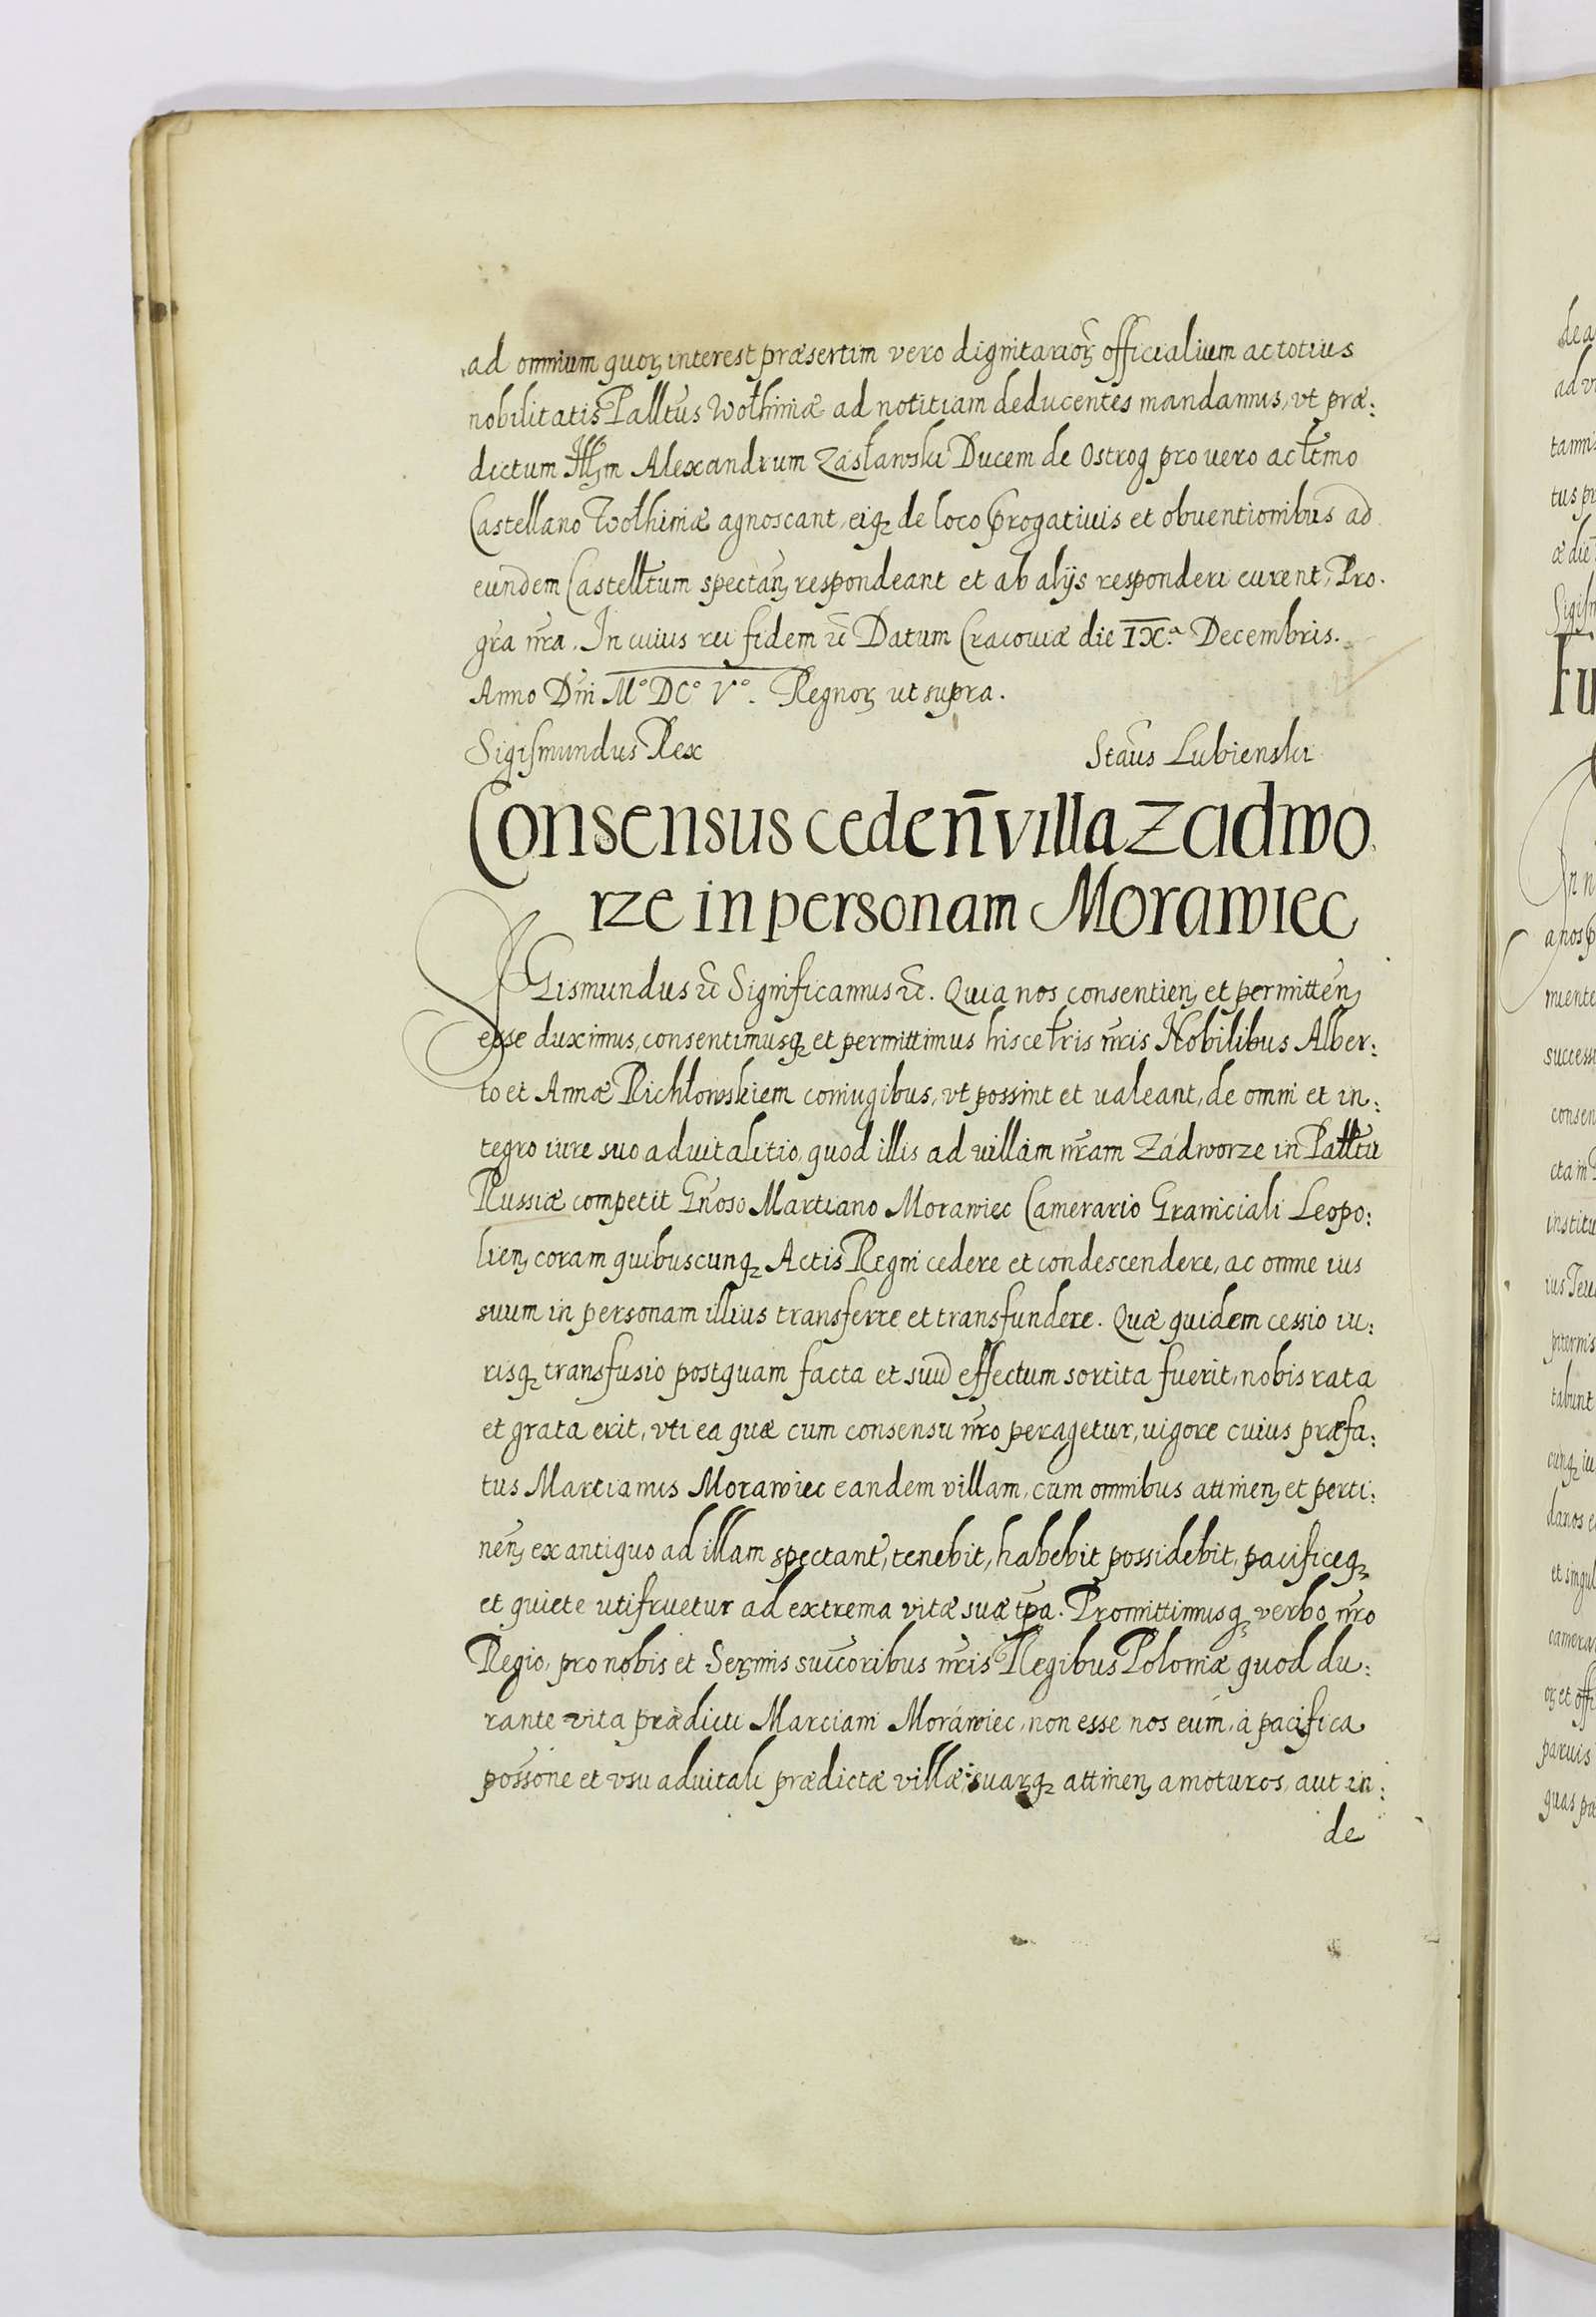 ad omnium quoꝝ interest præsertim vero dignitarioꝝ officialium ac totius
nobilitatis Palltus Wołhiniæ ad notitiam deducentes mandamus, vt præ:
dictum Illꝫm Alexandrum Zasławski Ducem de Ostrog pro uero ac ltmo
Castellano Wołhiniæ agnoscant, eiqꝫ de loco progatiuis et obuentionibus ad
eundem Castelltum spectanꝫ respondeant et ab alijs responderi curent, Pro
gra nra. In cuius rei fidem etc Datum Cracouiæ die IX.a Decembris.
Anno Dni M° DC° V°. Regnoꝝ ut supra.
Sigismundus Rex Staus Lubienski
Consensus ceden̄ villa Zadwo
rze in personam Morawiec
SIGismundus etc Significamus etc. Quia nos consentienꝫ et permittenꝫ
esse duximus, consentimusqꝫ et permittimus hisce lris nris Nobilibus Alber:
to et Annæ Richłowskiem coniugibus, vt possint et ualeant, de omni et in:
tegro iure suo aduitalitio, quod illis ad uillam nram Zadworze in Palltu
Russiæ competit Gnoso Martiano Morawiec Camerario Graniciali Leopo:
lienꝫ coram quibuscunqꝫ Actis Regni cedere et condescendere, ac omne ius
suum in personam illius transferre et transfundere. Quæ quidem cessio iu:
risqꝫ transfusio postquam facta et suū effectum sortita fuerit, nobis rata
et grata erit, vti ea quæ cum consensu nro peragetur, uigore cuius præfa:
tus Martianus Morawiec eandem villam, cum omnibus attinenꝫ et perti:
nenꝫ ex antiquo ad illam spectant, tenebit, habebit possidebit, pacificeqꝫ
et quiete utifruetur ad extrema vitæ suæ tpa. Promittimusqꝫ verbo nro
Regio, pro nobis et Serꝫmis succoribus nris Regibus Poloniæ quod du:
rante vita prædicti Marciani Morawiec, non esse nos eum, a pacifica
possone et vsu aduitali prædictæ villæ suarqꝫ attinenꝫ amoturos, aut in:
de